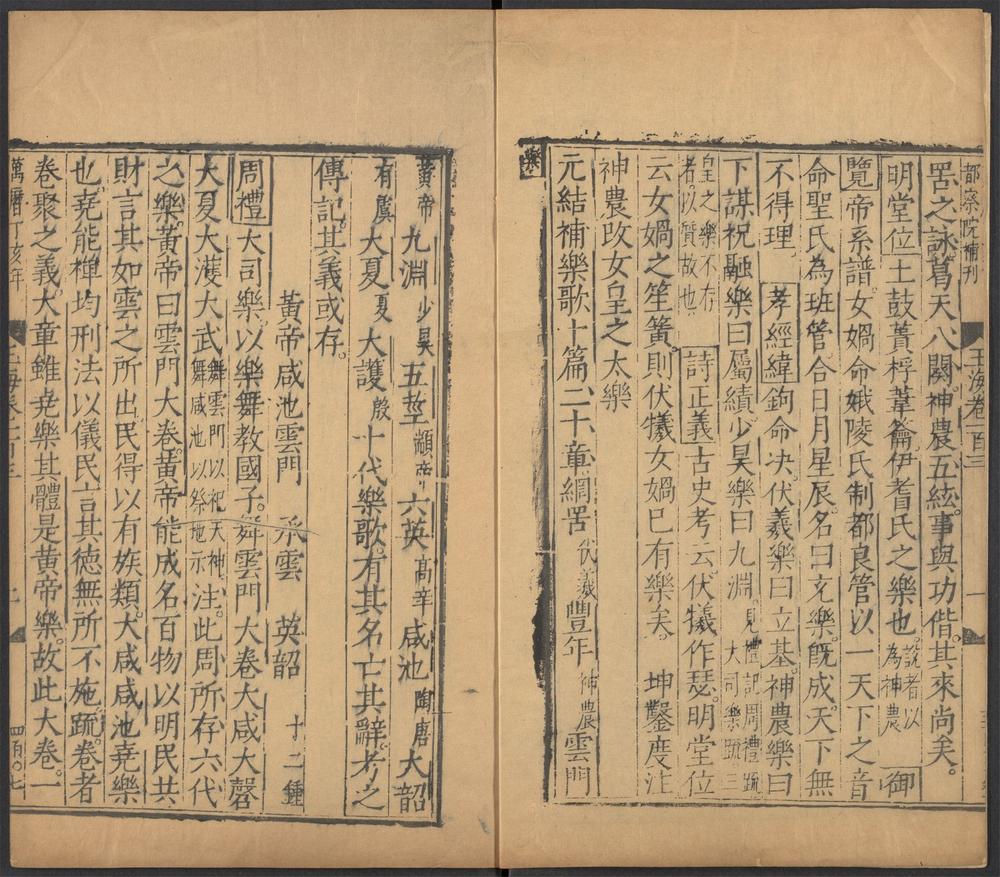 都察院補刊
玉海卷一百三
一
罟之詠葛天八闋神農五絃事與功偕其來尚矣
明堂位土鼓蕢桴葦籥伊耆氏之樂也說者以為神農御
覽帝系譜女媧命娥陵氏制都良管以一天下之音
命聖氏為班管合日月星辰名曰充樂旣成天下無
不得理 孝經緯鉤命決伏羲樂曰立基神農樂曰
下謀祝融樂曰屬續少昊樂曰九淵見禮記周禮疏大司樂疏三
皇之樂不存者以質故也詩正義古史考云伏犧作瑟明堂位
云女媧之笙簧則伏犧女媧已有樂矣 坤鑿度注
神農改女皇之太樂
元結補樂歌十篇二十章網罟伏羲豐年神農雲門
黃帝九淵少昊五莖顓帝六英高辛咸池陶唐大韶
有虞大夏夏大護殷十代樂歌有其名亡其辭考之
傳記其義或存
黃帝咸池雲門 承雲 英韶 十二鍾
周禮大司樂以樂舞教國子舞雲門大卷大咸大磬
大夏大濩大武舞雲門以祀天神舞咸池以祭地示注此周所存六代
之樂黃帝曰雲門大卷黃帝能成名百物以明民共
財言其如雲之所出民得以有族類大咸咸池堯樂
也堯能禪均刑法以儀民言其德無所不施疏卷者
卷聚之義大章雖堯樂其體是黃帝樂故此大卷一
萬曆丁亥年
二
四百〇七